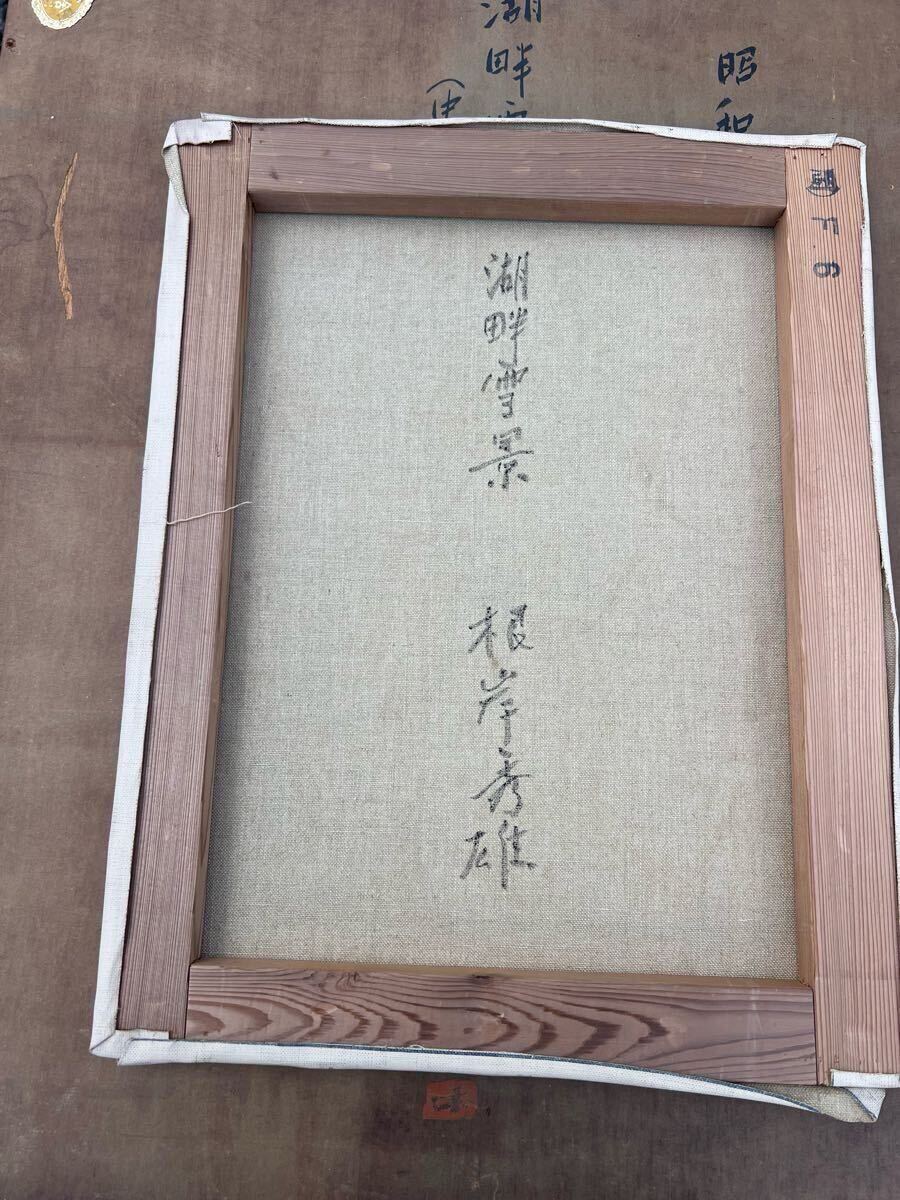 昭和
湖畔
F.6
湖畔雪景
根岸秀雄